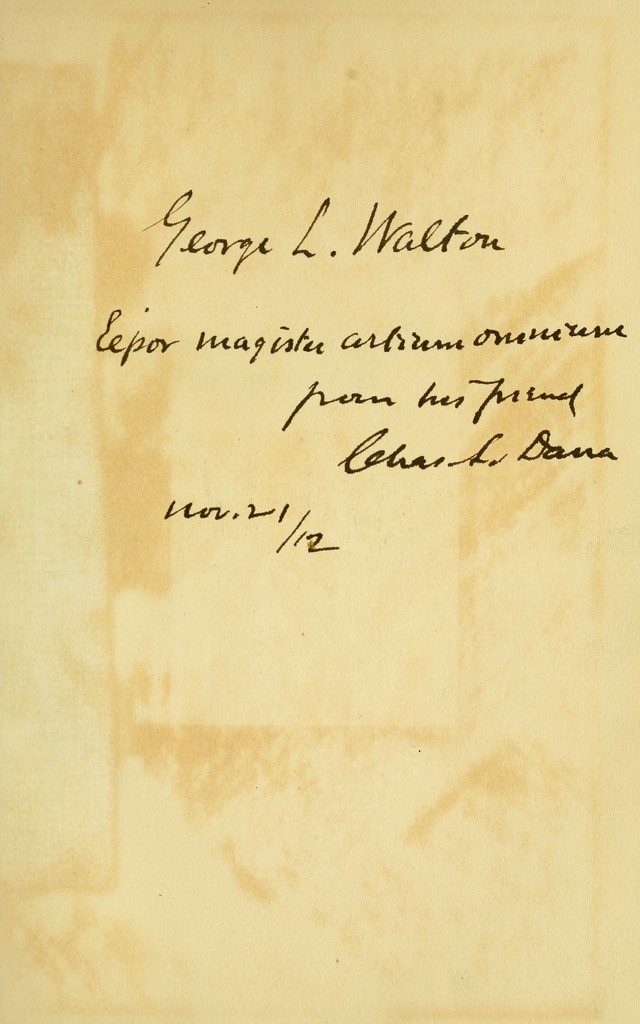 George L. Walton
magister artium omnium
from his friend
Chas. L. Dana
Nov. 21/12